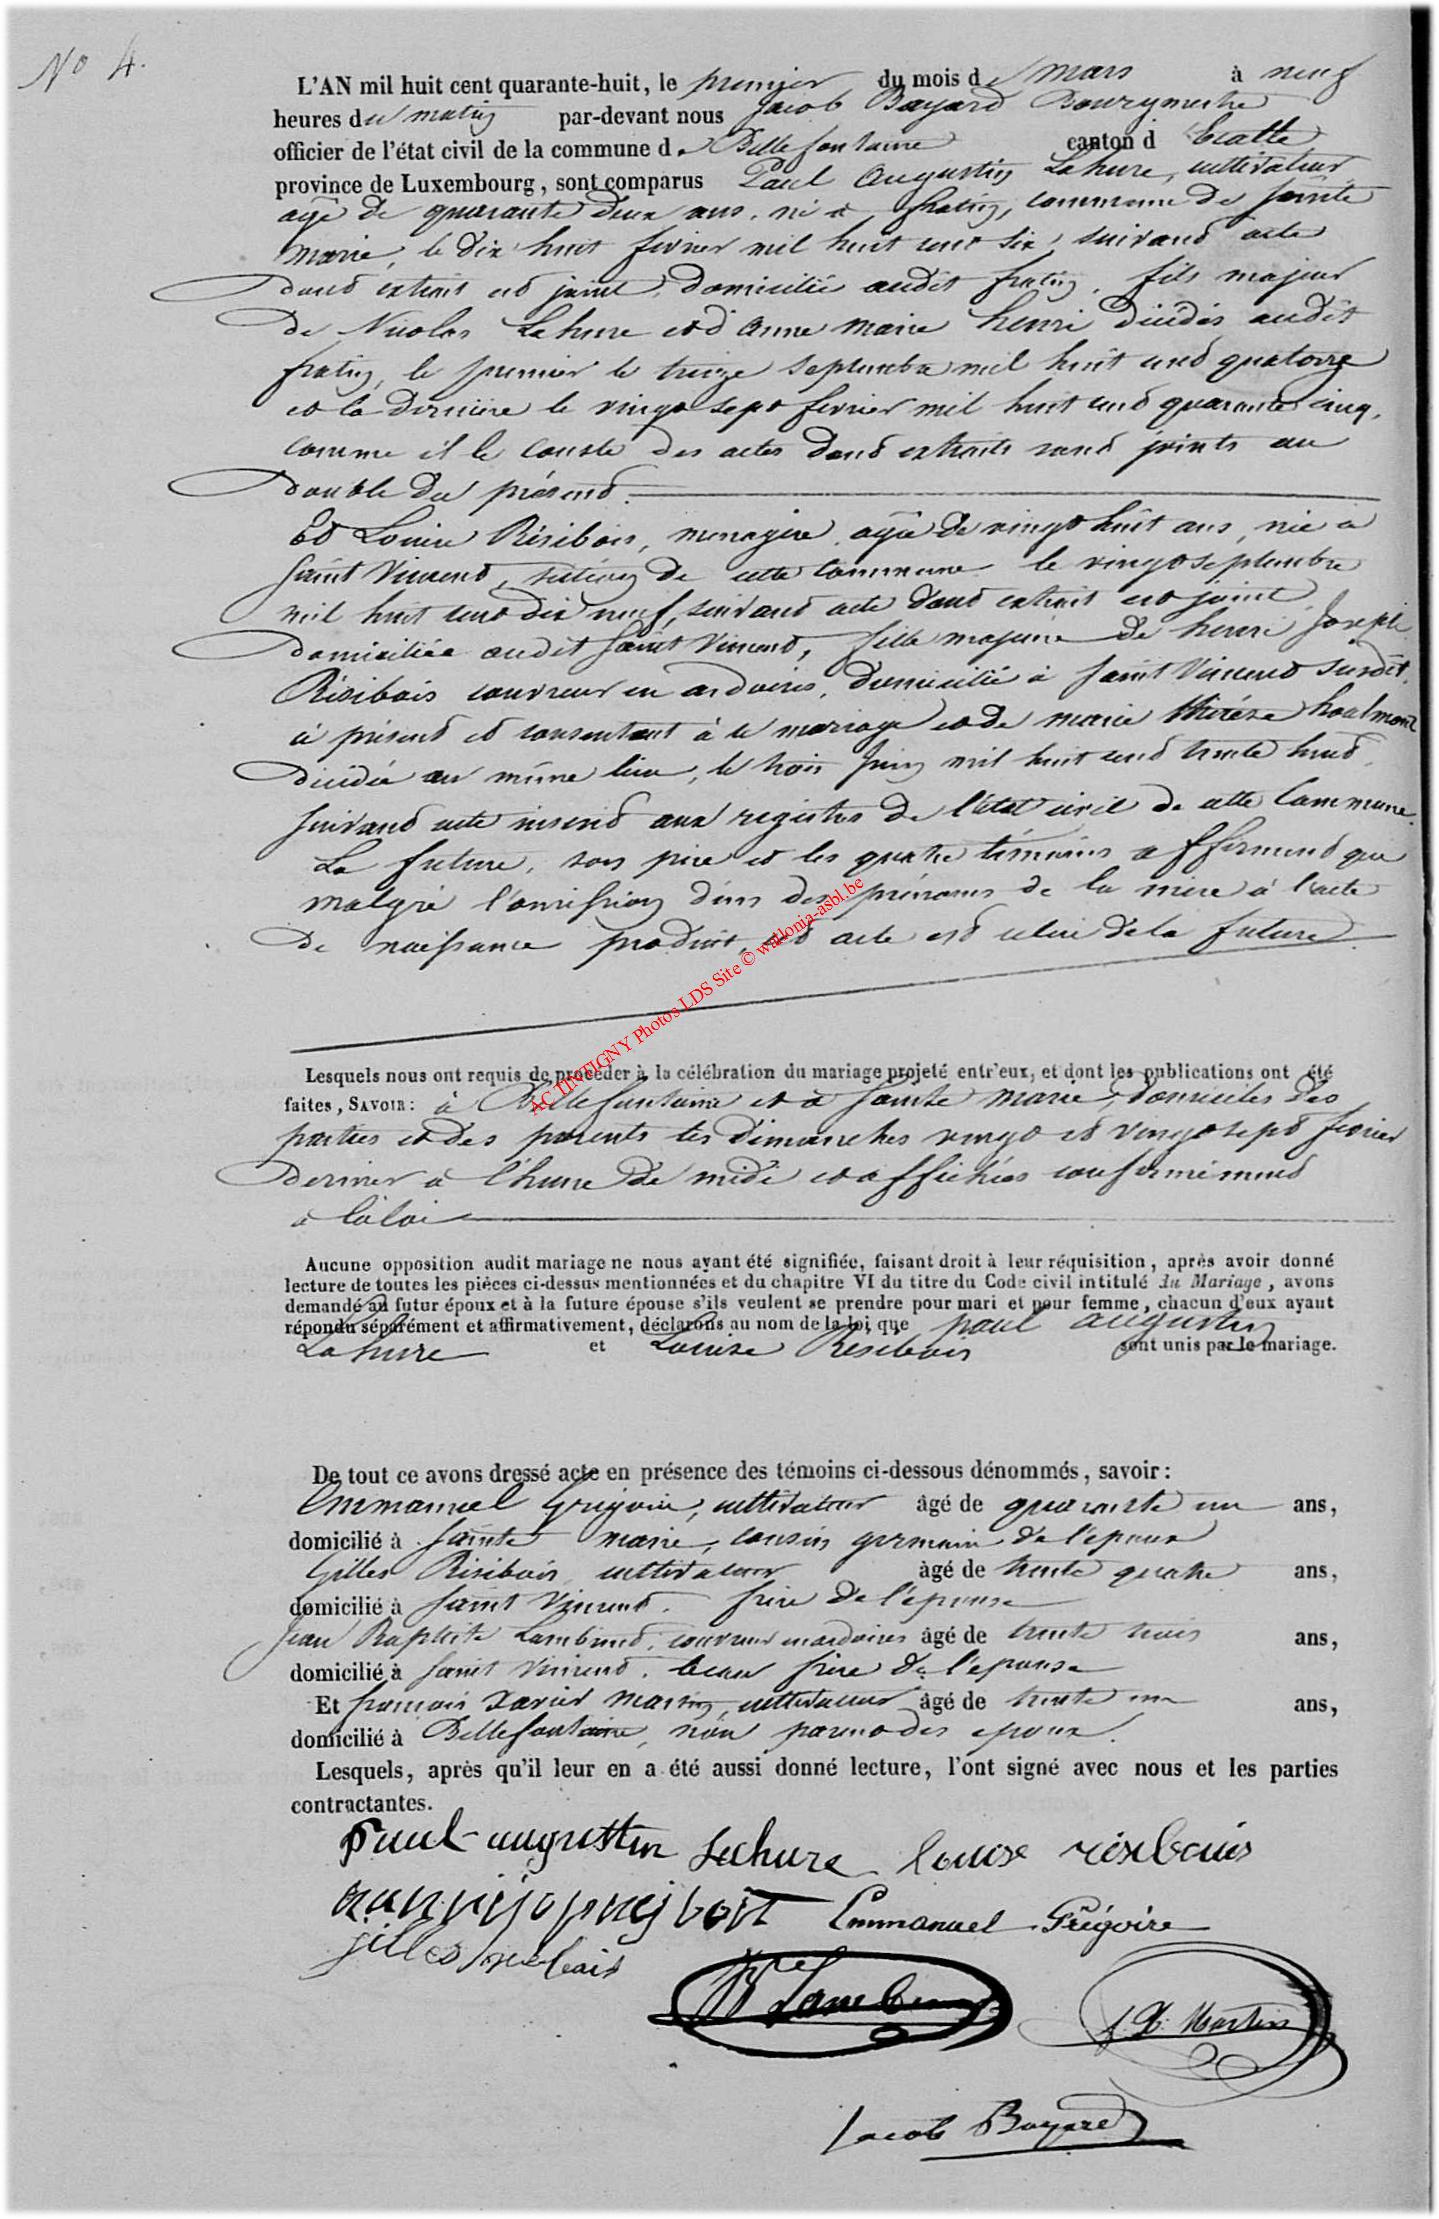 No 4.
L'AN mil huit cent quarante-huit, le premier du mois de mars à neuf
heures du matin par-devant nous Jacob Bayard Bourgmestre
officier de l'état civil de la commune de Bellefontaine canton d'Etalle
province de Luxembourg, sont comparus Paul Augustin Lahure, cultivateur
agé de quarante deux ans, né à fratin, commune de sainte
marie, le dix huit fevrier mil huit cent six, suivand acte
dond extrait est joint, domicilié audit fratin, fils majeur
de Nicolas Lahure et d'anne marie henri décédés audit
fratin, le premier le treize septembre mil huit cend quatorze
et la dernière le vingt sept fevrier mil huit cend quarante cinq,
comme il le conste des actes dond extraits sond joints au
double du présend.
Et Louise Résibois, menagère, agée de vingt huit ans, née à
saint Vincend, section de cette commune le vingt septembre
mil huit cent dix neuf, suivand acte dond extrait est joint,
domiciliée audit saint Vincend, fille majeure de henri Joseph
Résibois couvreur en ardoises, domicilié à saint Vincend susdit,
à présend et consentant à ce mariage et de marie thérèse houlmont
décédée au même lieu, le trois Juin mil huit cend trente huit
suivand acte inseré aux registres de l'état civil de cette Commune.
La future, son père et les quatre témoins affirmend que
malgré l'omission d'un des prénoms de la mère à l'acte
de naissance produit, cet acte est celui de la future
AC TINTIGNY Photos LDS Site © wallonia-asbl.be
Lesquels nous ont requis de procéder à la célébration du mariage projeté entr'eux, et dont les publications ont été
faites, SAVOIR: à Bellefontaine et à Sainte marie, domiciles des
parties et des parents les dimanches vingt et vingt sept fevrier
dernier à l'heure de midi et affichées conformémend
à la loi
Aucune opposition audit mariage ne nous ayant été signifiée, faisant droit à leur réquisition, après avoir donné
lecture de toutes les pièces ci-dessus mentionnées et du chapitre VI du titre du Code civil intitulé du Mariage, avons
demandé au futur époux et à la future épouse s'ils veulent se prendre pour mari et pour femme, chacun d'eux ayant
répondu séparément et affirmativement, déclarons au nom de la loi que paul augustin
Lahure et Louise Résibois sont unis par le mariage.
De tout ce avons dressé acte en présence des témoins ci-dessous dénommés, savoir:
Emmanuel Grégoire, cultivateur âgé de quarante un ans,
domicilié à sainte marie, cousin germain de l'epoux
Gilles Résibois, cultivateur âgé de trente quatre ans,
domicilié à saint Vincend, frère de l'épouse
Jean Baptiste Lambined, couvreur en ardoises âgé de trente trois ans,
domicilié à saint Vincend, beau frère de l'epouse
Et françois Xavier Martin, cultivateur âgé de trente un ans,
domicilié à Bellefontaine, non parend des epoux.
Lesquels, après qu'il leur en a été aussi donné lecture, l'ont signé avec nous et les parties
contractantes.
paul-augustin Lahure louise résibois
Emmanuel Grégoire
gilles résibais
JBte Lambinet
f. X. Martin
Jacob Bayard